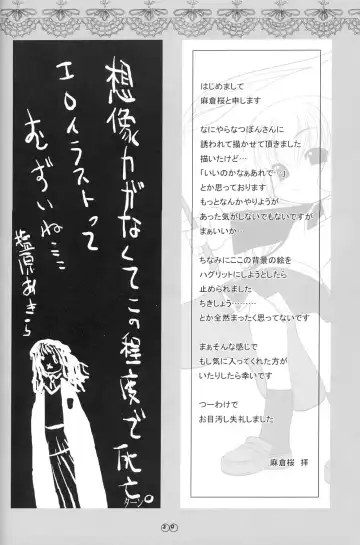 はじめまして
麻倉桜と申します
なにやらなつぽんさんに
誘われて描かせて頂きました
描いたけど…
「いいのかなぁあれで…」
とか思っております
もっとなんかやりようが
あった気がしないでもないですが
まぁいいか…
ちなみにここの背景の絵を
ハグリットにしようとしたら
止められました
ちきしょう………
とか全然まったく思ってないです
まぁそんな感じで
もし気に入ってくれた方が
いたりしたら幸いです
つーわけで
お目汚し失礼しました
麻倉桜 拝
想像力がなくてこの程度で死亡。
ターン
エロイラストって
むずいね…
塩原あきら
30